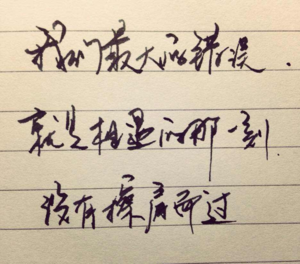 我们最大的错误.
就是相遇的那一刻.
没有擦肩而过